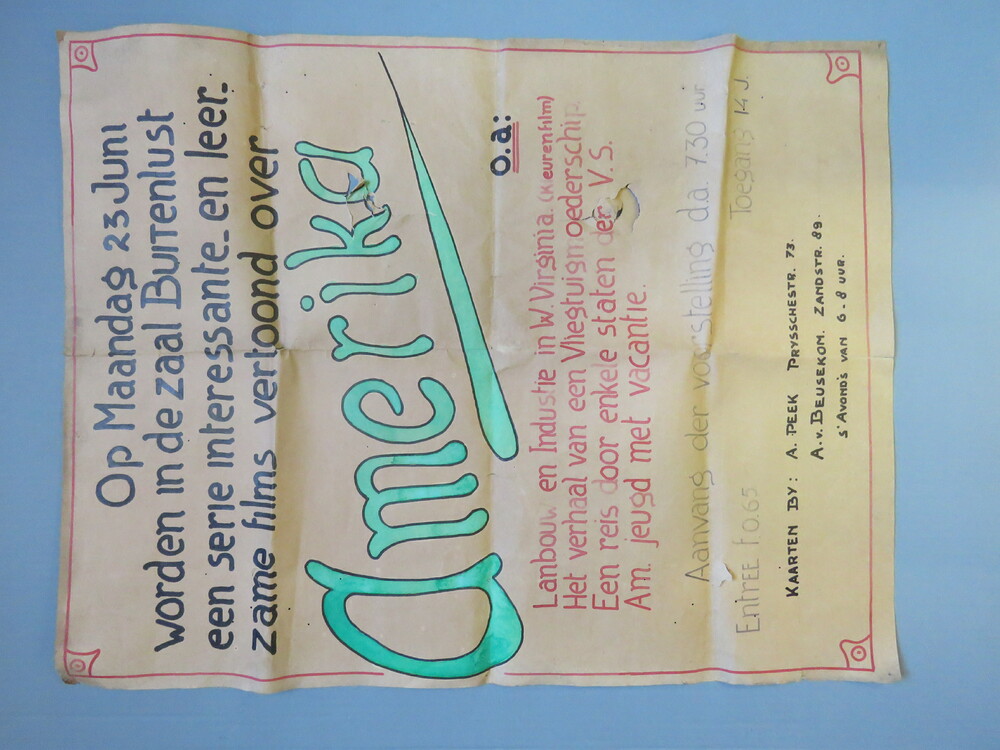 Op Maandag 23 Juni
worden in de zaal Buitenlust
een serie interessante_en leer_
zame films vertoond over
amerika
o.a:
Lanbouw en Industie in W. Virginia. (Kleurenfilm)
Het verhaal van een Vliegtuigmoederschip
Een reis door enkele staten der V.S.
Am. jeugd met vacantie.
Aanvang der voorstelling d.a. 7.30 uur
Entree f.0.65 Toegang 14 J.
KAARTEN BY: A. PEEK PRYSSCHESTR. 73.
A.v. BEUSEKOM. ZANDSTR. 89.
S'AVOND'S VAN 6-8 UUR.